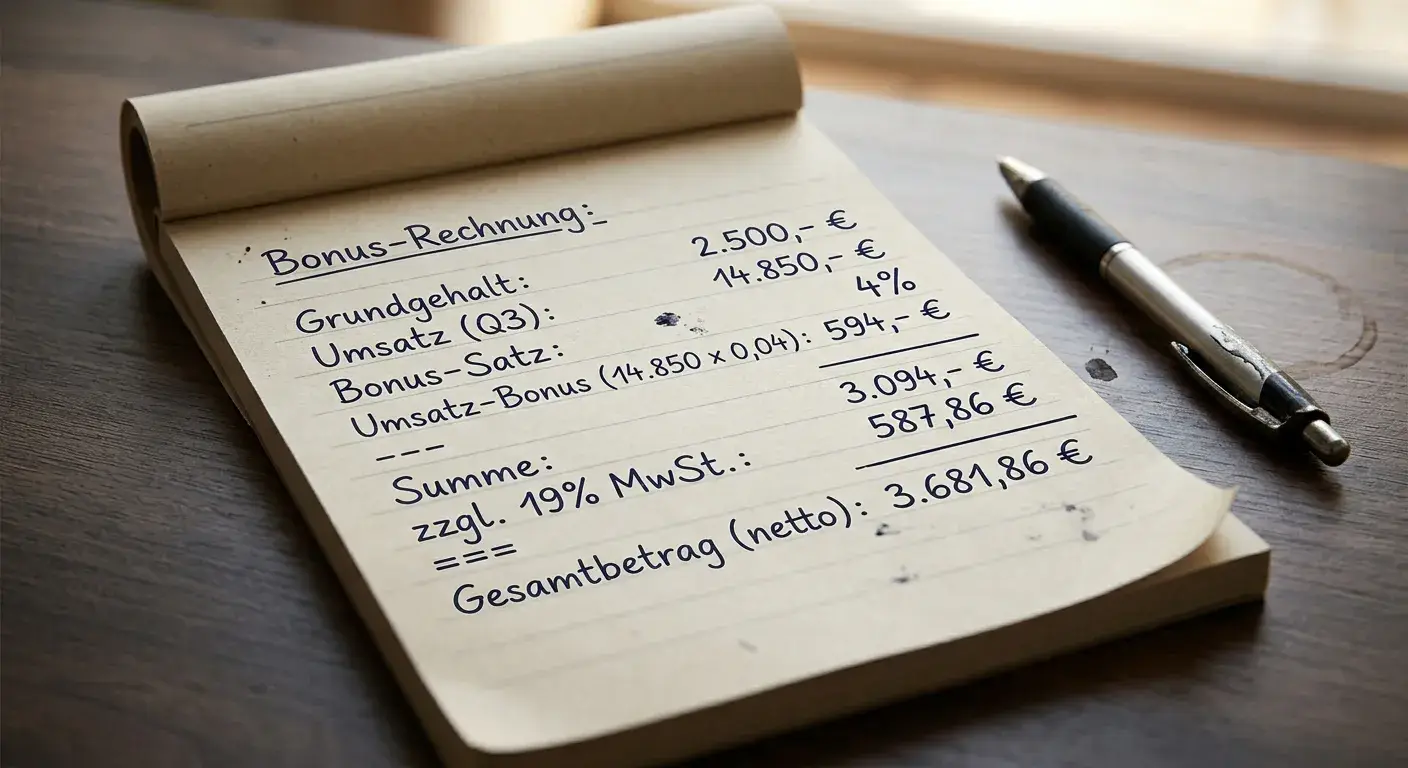 Bonus-Rechnung:
Grundgehalt: 2.500,- €
Umsatz (Q3): 14.850,- €
Bonus-Satz: 4%
Umsatz-Bonus (14.850 x 0,04): 594,- €
---
Summe: 3.094,- €
zzgl. 19% MwSt.: 587,86 €
===
Gesamtbetrag (netto): 3.681,86 €